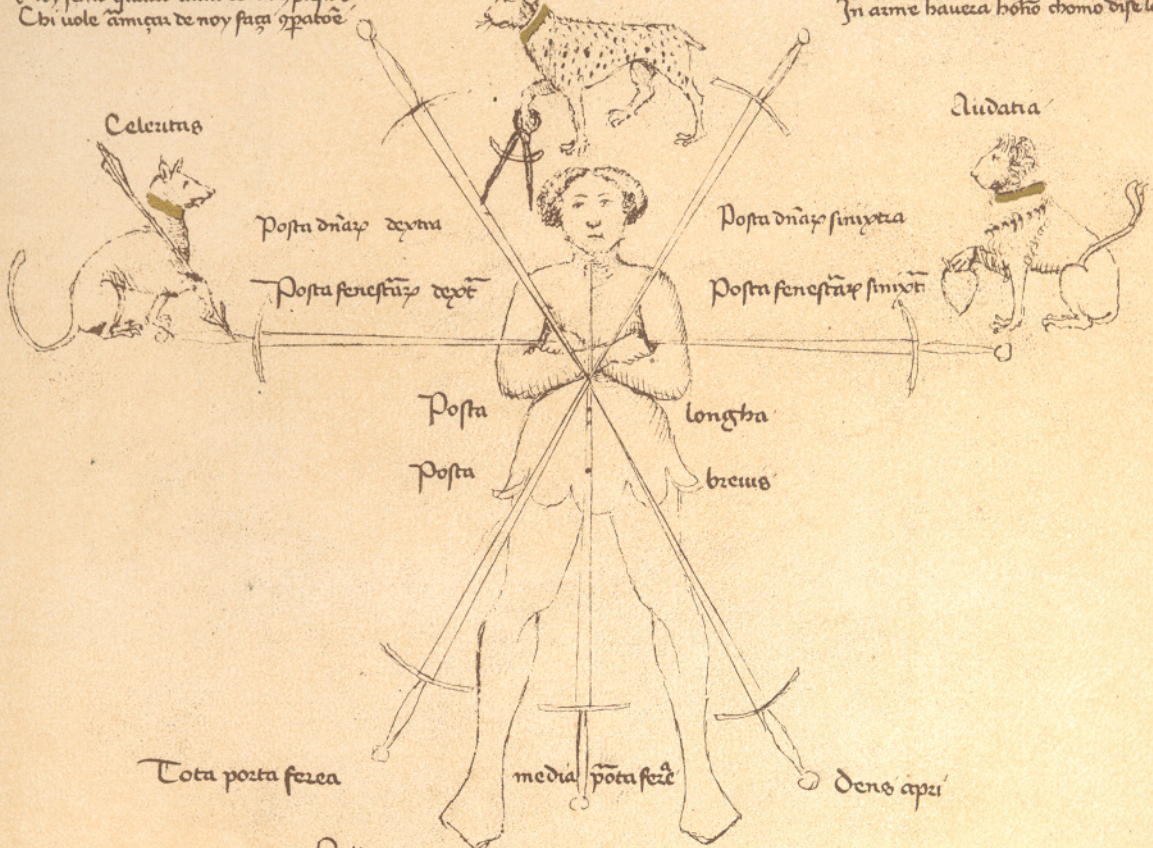 Chi uole amiçar de noy faça
In arme havera honō chomo dise
Celeritas
Audatia
Posta dn̄arꝝ dextra
Posta dn̄arꝝ sinixtra
Posta fenestārꝝ dext̄
Posta fenestārꝝ sinixt̄
Posta longha
Posta breuis
Tota porta ferea
media pōta fere
Dens apri